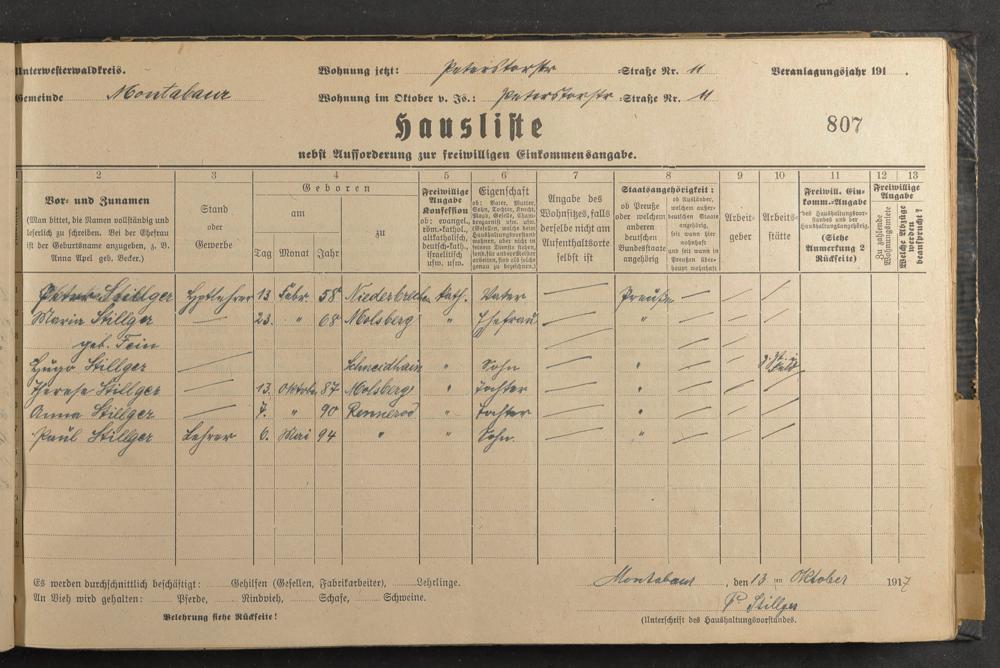 Unterwesterwaldkreis. Wohnung jetzt: Peterstorstr -Straße Nr. 11 Veranlagungsjahr 191
Gemeinde Montabaur Wohnung im Oktober v. Js.: Peterstorstr -Straße Nr. 11
Hausliste
807
nebst Aufforderung zur freiwilligen Einkommensangabe.
2 3 4 5 6 7 8 9 10 11 12 13
Vor- und Zunamen
(Man bittet, die Namen vollständig und
leserlich zu schreiben. Bei der Ehefrau
ist der Geburtsname anzugeben, z. B.
Anna Apel geb. Becker.)
Stand
oder
Gewerbe
Geboren
am
zu
Tag Monat Jahr
Freiwillige
Angabe
Konfession
ob: evangel.,
röm.-kathol.,
altkatholisch,
deutsch-kath.,
israelitisch
usw. usw.
Eigenschaft
ob: Vater, Mutter,
Sohn, Tochter, Knecht,
Magd, Geselle, Cham-
bregarnist usw. usw.
Angabe des
Wohnsitzes, falls
derselbe nicht am
Aufenthaltsorte
selbst ist
Staatsangehörigkeit:
ob Preuße
oder welchem
anderen
deutschen
Bundesstaate
angehörig
ob Ausländer,
welchem außer-
deutschen Staate
angehörig,
seit wann hier
wohnhaft
und seit wann in
Preußen über-
haupt wohnhaft
Arbeit-
geber
Arbeits-
stätte
Freiwill. Ein-
komm.-Angabe
des Haushaltungsvor-
standes und der
Haushaltungsangehörig.
(Siehe
Anmerkung 2
Rückseite)
Freiwillige
Angabe
Zu zahlende
Wohnungsmiete
Welche Abzüge
werden
beansprucht?
Peter Stillger Hptlehrer 13 Febr. 58 Niederbrechen kath. Vater Preuße
Maria Stillger 23. " 68 Molsberg " Ehefrau "
geb. Fein
Hugo Stillger Schneidhain " Sohn "
Therese Stillger 13. Oktober 87 Molsberg " Tochter "
Anna Stillger 7. " 90 Rennerod " Tochter "
Paul Stillger Lehrer 6. Mai 94 " " Sohn "
Es werden durchschnittlich beschäftigt: Gehilfen (Gesellen, Fabrikarbeiter), Lehrlinge.
An Vieh wird gehalten: Pferde, Rindvieh, Schafe, Schweine.
Belehrung siehe Rückseite!
Montabaur, den 13 ten Oktober 1917
P. Stillger
(Unterschrift des Haushaltungsvorstandes.